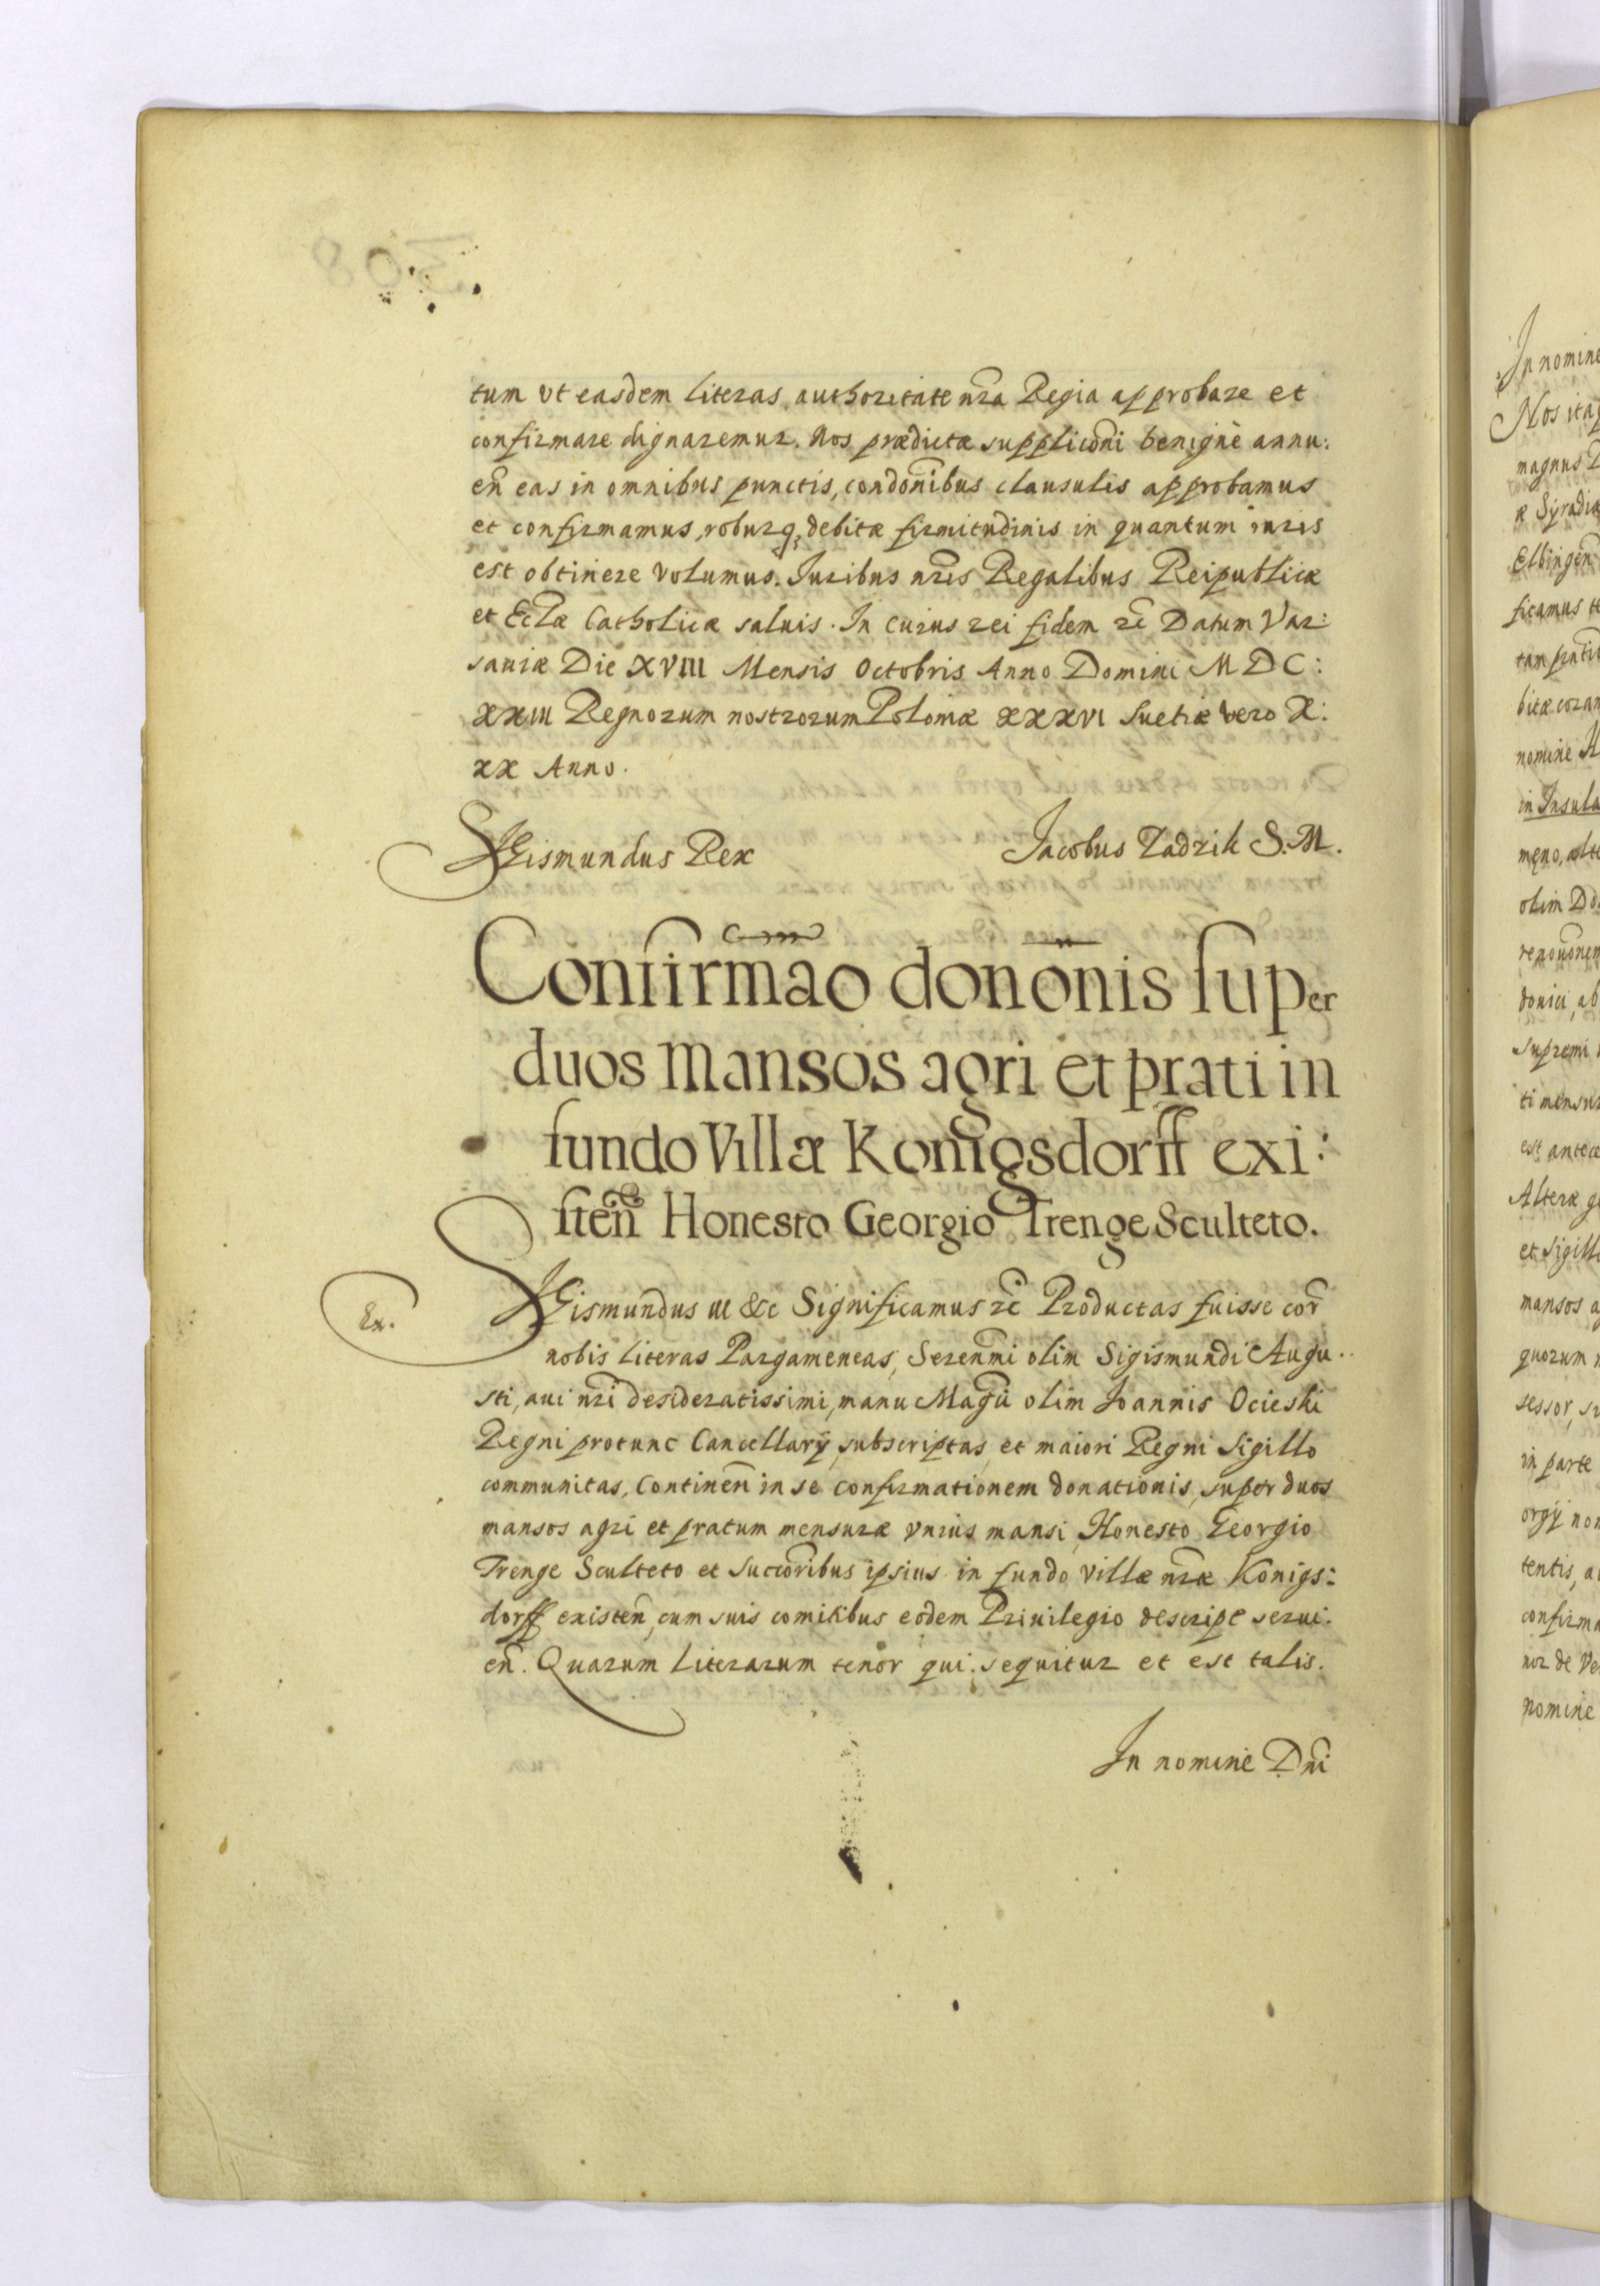 tum vt easdem literas authoritate nr̃a Regia approbare et
confirmare dignaremur. Nos prædictæ supplicõni benignè annu:
eñ eas in omnibus punctis, condõnibus clausulis approbamus
et confirmamus, roburq₃ debitæ firmitudinis in quantum iuris
est obtinere volumus. Iuribus nr̃is Regalibus Reipublicæ
et Eccl̃æ Catholicæ saluis. In cuius rei fidem &c̃ Datum Var:
sauiæ Die XVIII Mensis Octobris Anno Domini MDC:
XXIII Regnorum nostrorum Poloniæ XXXVI Suetiæ vero X:
XX Anno.
SIGismundus Rex Jacobus Zadzik S.M.
Confirmao donõnis super
duos Mansos agri et prati in
fundo Villæ Konigsdorff exi:
steñ Honesto Georgio Trenge Sculteto.
Ex.
SIGismundus III &c Significamus &c̃ Productas fuisse cor̃
nobis literas Pargameneas, Serenm̃i olim Sigismundi Augu..
sti, aui nr̃i desideratissimi, manu Mag̃ci olim Joannis Ocieski
Regni protunc Cancellarÿ, subscriptas, et maiori Regni Sigillo
communitas, Continen̄ in se confirmationem donationis, super duos
mansos agri et pratum mensuræ vnius mansi, Honesto Georgio
Trenge Sculteto et Succõribus ipsius in fundo villæ nr̃æ Königs:
dorff existen̄, cum suis comitibus eodem Priuilegio descripe serui.
en̄. Quarum literarum tenor qui sequitur et est talis.
In nomine Dn̄i
In nomine
Nos itaq
magnus D
æ Syradiæ
Elbingen̄
ficamus
nomine
in Insula
olim
donici, ab
Supremi
ti mensur
est antece
Alteræ
et Sigill
mansos a
quorum
sessor, su
in parte
orgÿ non
tentis, a
confirma
nomine